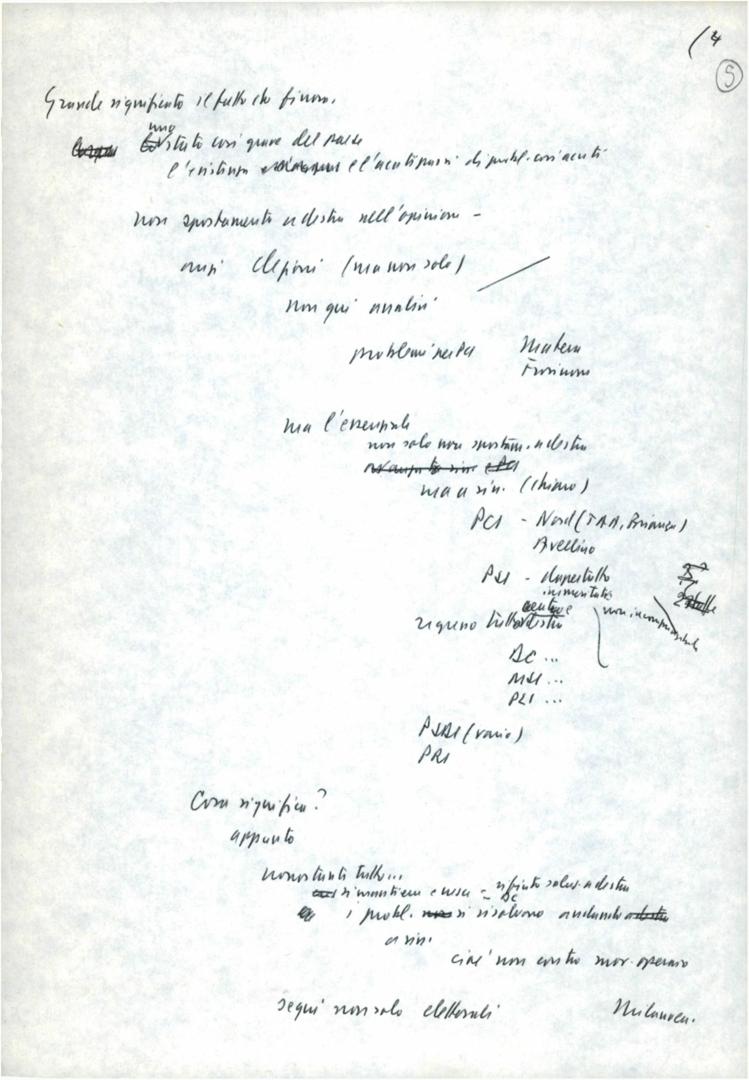 (4
5
Grande significato il fatto che finora.
uno
stato così grave del paese
l'esistenza e l'acutizzarsi di probl. così acuti
non spostamento a destra nell'opinione -
anzi elezioni (ma non solo)
non qui analisi
problemi nel PCI Matera
Frosinone
ma l'essenziale
non solo non spostam. a destra
ma a sin. (chiaro)
PCI - Nord (TAA, Brianza)
Avellino
PSI - dappertutto
incrementato
centro e
regresso tutto destra non incomprensibile
DC ...
MSI ...
PLI ...
PSDI (vario)
PRI
Cosa significa?
appunto
nonostante tutto...
si mantiene e cresce = rifiuto soluz. a destra
DC
i probl. si risolvono andando
a sin.
cioè non contro mov. operaio
segni non solo elettorali